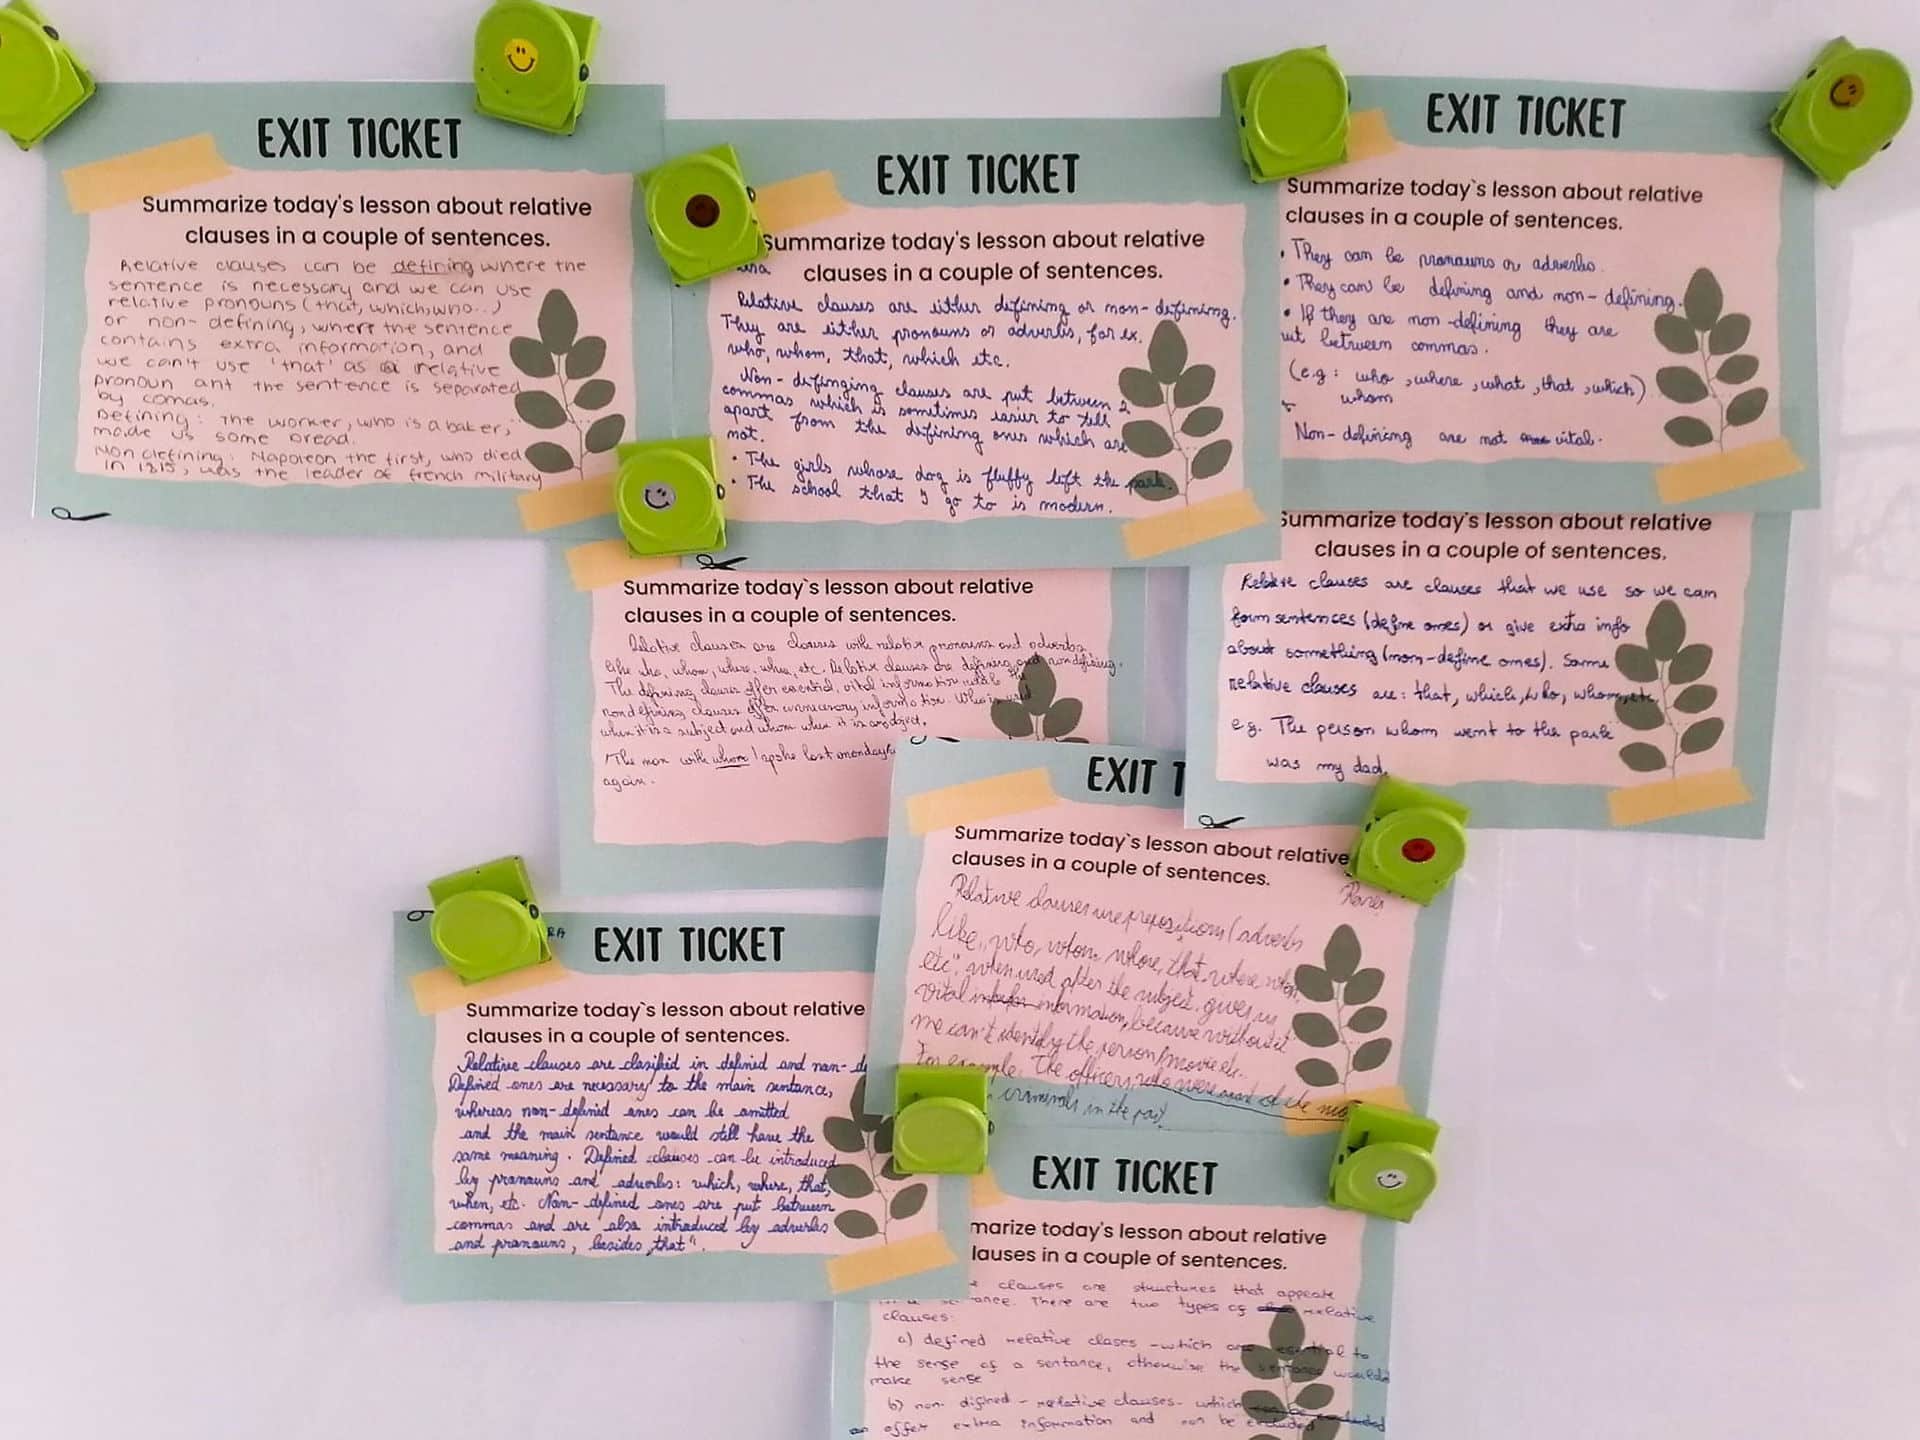 EXIT TICKET
Summarize today's lesson about relative
clauses in a couple of sentences.
Relative clauses can be defining where the
sentence is necessary and we can use
relative pronouns (that, which, who..)
or non-defining, where the sentence
contains extra information, and
we can't use 'that' as a relative
pronoun ant the sentence is separated
by comas.
Defining: The worker, who is a baker,
made us some bread.
Non defining: Napoleon the first, who died
in 1815, was the leader of french military
EXIT TICKET
Summarize today's lesson about relative
clauses in a couple of sentences.
Relative clauses are either defining or non-defining.
They are either pronouns or adverbs, for ex.
who, whom, that, which etc.
Non-definging clauses are put between 2
commas which is sometimes easier to tell
apart from the defining ones which are
not.
• The girls whose dog is fluffy left the park.
• The school that I go to is modern.
EXIT TICKET
Summarize today`s lesson about relative
clauses in a couple of sentences.
• They can be pronouns or adverbs.
• They can be defining and non-defining.
• If they are non-defining they are
put between commas.
(e.g: who, where, what, that, which)
whom
Non-defining are not vital.
Summarize today`s lesson about relative
clauses in a couple of sentences.
Relative clauses are clauses with relative pronouns and adverbs
like who, whom, where, when, etc. Relative clauses are defining and non defining.
The defining clauses offer essential, vital information while the
nondefining clauses offer unnecessary information. Who is used
when it is a subject and whom when it is an object.
The man with whom I spoke last monday
again.
Summarize today's lesson about relative
clauses in a couple of sentences.
Relative clauses are clauses that we use so we can
form sentences (define ones) or give extra info
about something (non-define ones). Some
relative clauses are: that, which, who, whom, etc.
e.g. The person whom went to the park
was my dad.
EXIT T
Summarize today`s lesson about relative
clauses in a couple of sentences.
Relative clauses use prepositions (adverbs
like „who, whom, whose, that, where, when,
etc", when used after the subject, gives us
vital information, because without it
we can't identify the person/movie etc.
For example: The officers, who were most of the
criminals in the past
EXIT TICKET
Summarize today`s lesson about relative
clauses in a couple of sentences.
Relative clauses are clasified in defined and non-de
Defined ones are necessary to the main sentance,
whereas non-defined ones can be omitted
and the main sentance would still have the
same meaning. Defined clauses can be introduced
by pronouns and adverbs: which, where, that,
when, etc. Non-defined ones are put between
commas and are also introduced by adverbs
and pronouns, besides „that".
EXIT TICKET
marize today's lesson about relative
lauses in a couple of sentences.
clauses are structures that appeare
There are two types of relative
clauses:
a) defined relative clases - which are essential to
the sense of a sentance, otherwise the sentance would
make sense
b) non-difined - relative clauses - which
offer extra information and can be excluded